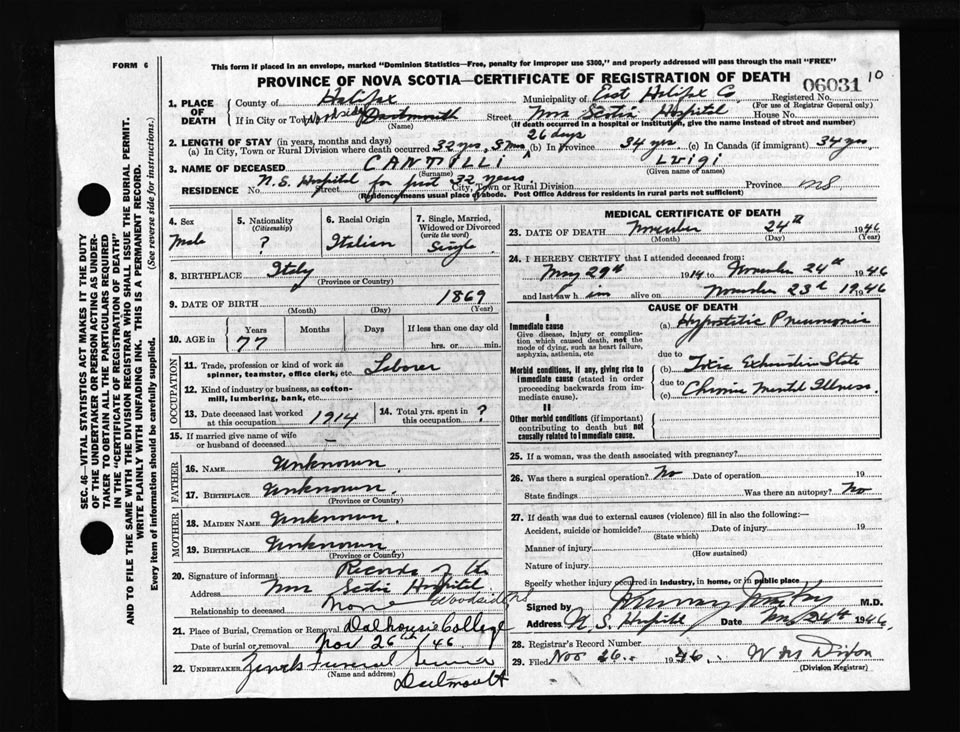 FORM 6
This form if placed in an envelope, marked "Dominion Statistics—Free, penalty for improper use $300," and properly addressed will pass through the mail "FREE"
PROVINCE OF NOVA SCOTIA—CERTIFICATE OF REGISTRATION OF DEATH
06031 10
1. PLACE OF DEATH County of Halifax Municipality of East Halifax Co. Registered No. (For use of Registrar General only)
If in City or Town Dartmouth (Name) Street Nova Scotia Hospital House No.
(If death occurred in a hospital or institution, give the name instead of street and number)
26 days
2. LENGTH OF STAY (in years, months and days)
(a) In City, Town or Rural Division where death occurred 32 yrs, (b) In Province 34 yrs (c) In Canada (if immigrant) 34 yrs
3. NAME OF DECEASED CANTILLI (Surname) Luigi (Given name or names)
RESIDENCE No. N.S. Hospital for past 32 years. Street City, Town or Rural Division Province NS
(Residence means usual place of abode. Post Office Address for residents in rural parts not sufficient)
4. Sex Male
5. Nationality (Citizenship) ?
6. Racial Origin Italian
7. Single, Married, Widowed or Divorced (write the word) Single
8. BIRTHPLACE Italy (Province or Country)
9. DATE OF BIRTH 1869 (Month) (Day) (Year)
10. AGE in Years 77 Months Days If less than one day old hrs. or min.
OCCUPATION
11. Trade, profession or kind of work as spinner, teamster, office clerk, etc. Laborer
12. Kind of industry or business, as cotton-mill, lumbering, bank, etc.
13. Date deceased last worked at this occupation 1914
14. Total yrs. spent in this occupation ?
15. If married give name of wife or husband of deceased —
FATHER
16. NAME Unknown.
17. BIRTHPLACE Unknown. (Province or Country)
MOTHER
18. MAIDEN NAME Unknown.
19. BIRTHPLACE Unknown. (Province or Country)
20. Signature of informant Records of the
Address Nova Scotia Hospital
Woodside NS
Relationship to deceased None
21. Place of Burial, Cremation or Removal Dalhousie College
Date of burial or removal Nov 26th/46.
22. UNDERTAKER Funeral Service
(Name and address) Dartmouth
MEDICAL CERTIFICATE OF DEATH
23. DATE OF DEATH November 24th 1946 (Month) (Day) (Year)
24. I HEREBY CERTIFY that I attended deceased from:
May 29th 1914 to November 24th 1946
and last saw him alive on November 23rd 1946
CAUSE OF DEATH
I
Immediate cause
Give disease, injury or complication which caused death, not the mode of dying, such as heart failure, asphyxia, asthenia, etc
(a) Hypostatic Pneumonia
due to
Morbid conditions, if any, giving rise to immediate cause (stated in order proceeding backwards from immediate cause).
(b) Toxic Exhaustion State
due to
(c) Chronic Mental Illness.
II
Other morbid conditions (if important) contributing to death but not causally related to immediate cause.
25. If a woman, was the death associated with pregnancy?
26. Was there a surgical operation? No Date of operation 19
State findings Was there an autopsy? No
27. If death was due to external causes (violence) fill in also the following:—
Accident, suicide or homicide? Date of injury 19
(State which)
Manner of injury (How sustained)
Nature of injury
Specify whether injury occurred in industry, in home, or in public place
Signed by Murray M.D.
Address N.S. Hospital Date Nov 24th 1946.
28. Registrar's Record Number
29. Filed Nov 26. 1946. W M Dixon (Division Registrar)
SEC. 46—VITAL STATISTICS ACT MAKES IT THE DUTY
OF THE UNDERTAKER OR PERSON ACTING AS UNDERTAKER
TO OBTAIN ALL THE PARTICULARS REQUIRED
IN THE "CERTIFICATE OF REGISTRATION OF DEATH"
AND TO FILE THE SAME WITH THE DIVISION REGISTRAR WHO SHALL ISSUE THE BURIAL PERMIT.
WRITE PLAINLY WITH UNFADING INK. THIS IS A PERMANENT RECORD.
Every item of information should be carefully supplied. (See reverse side for instructions.)